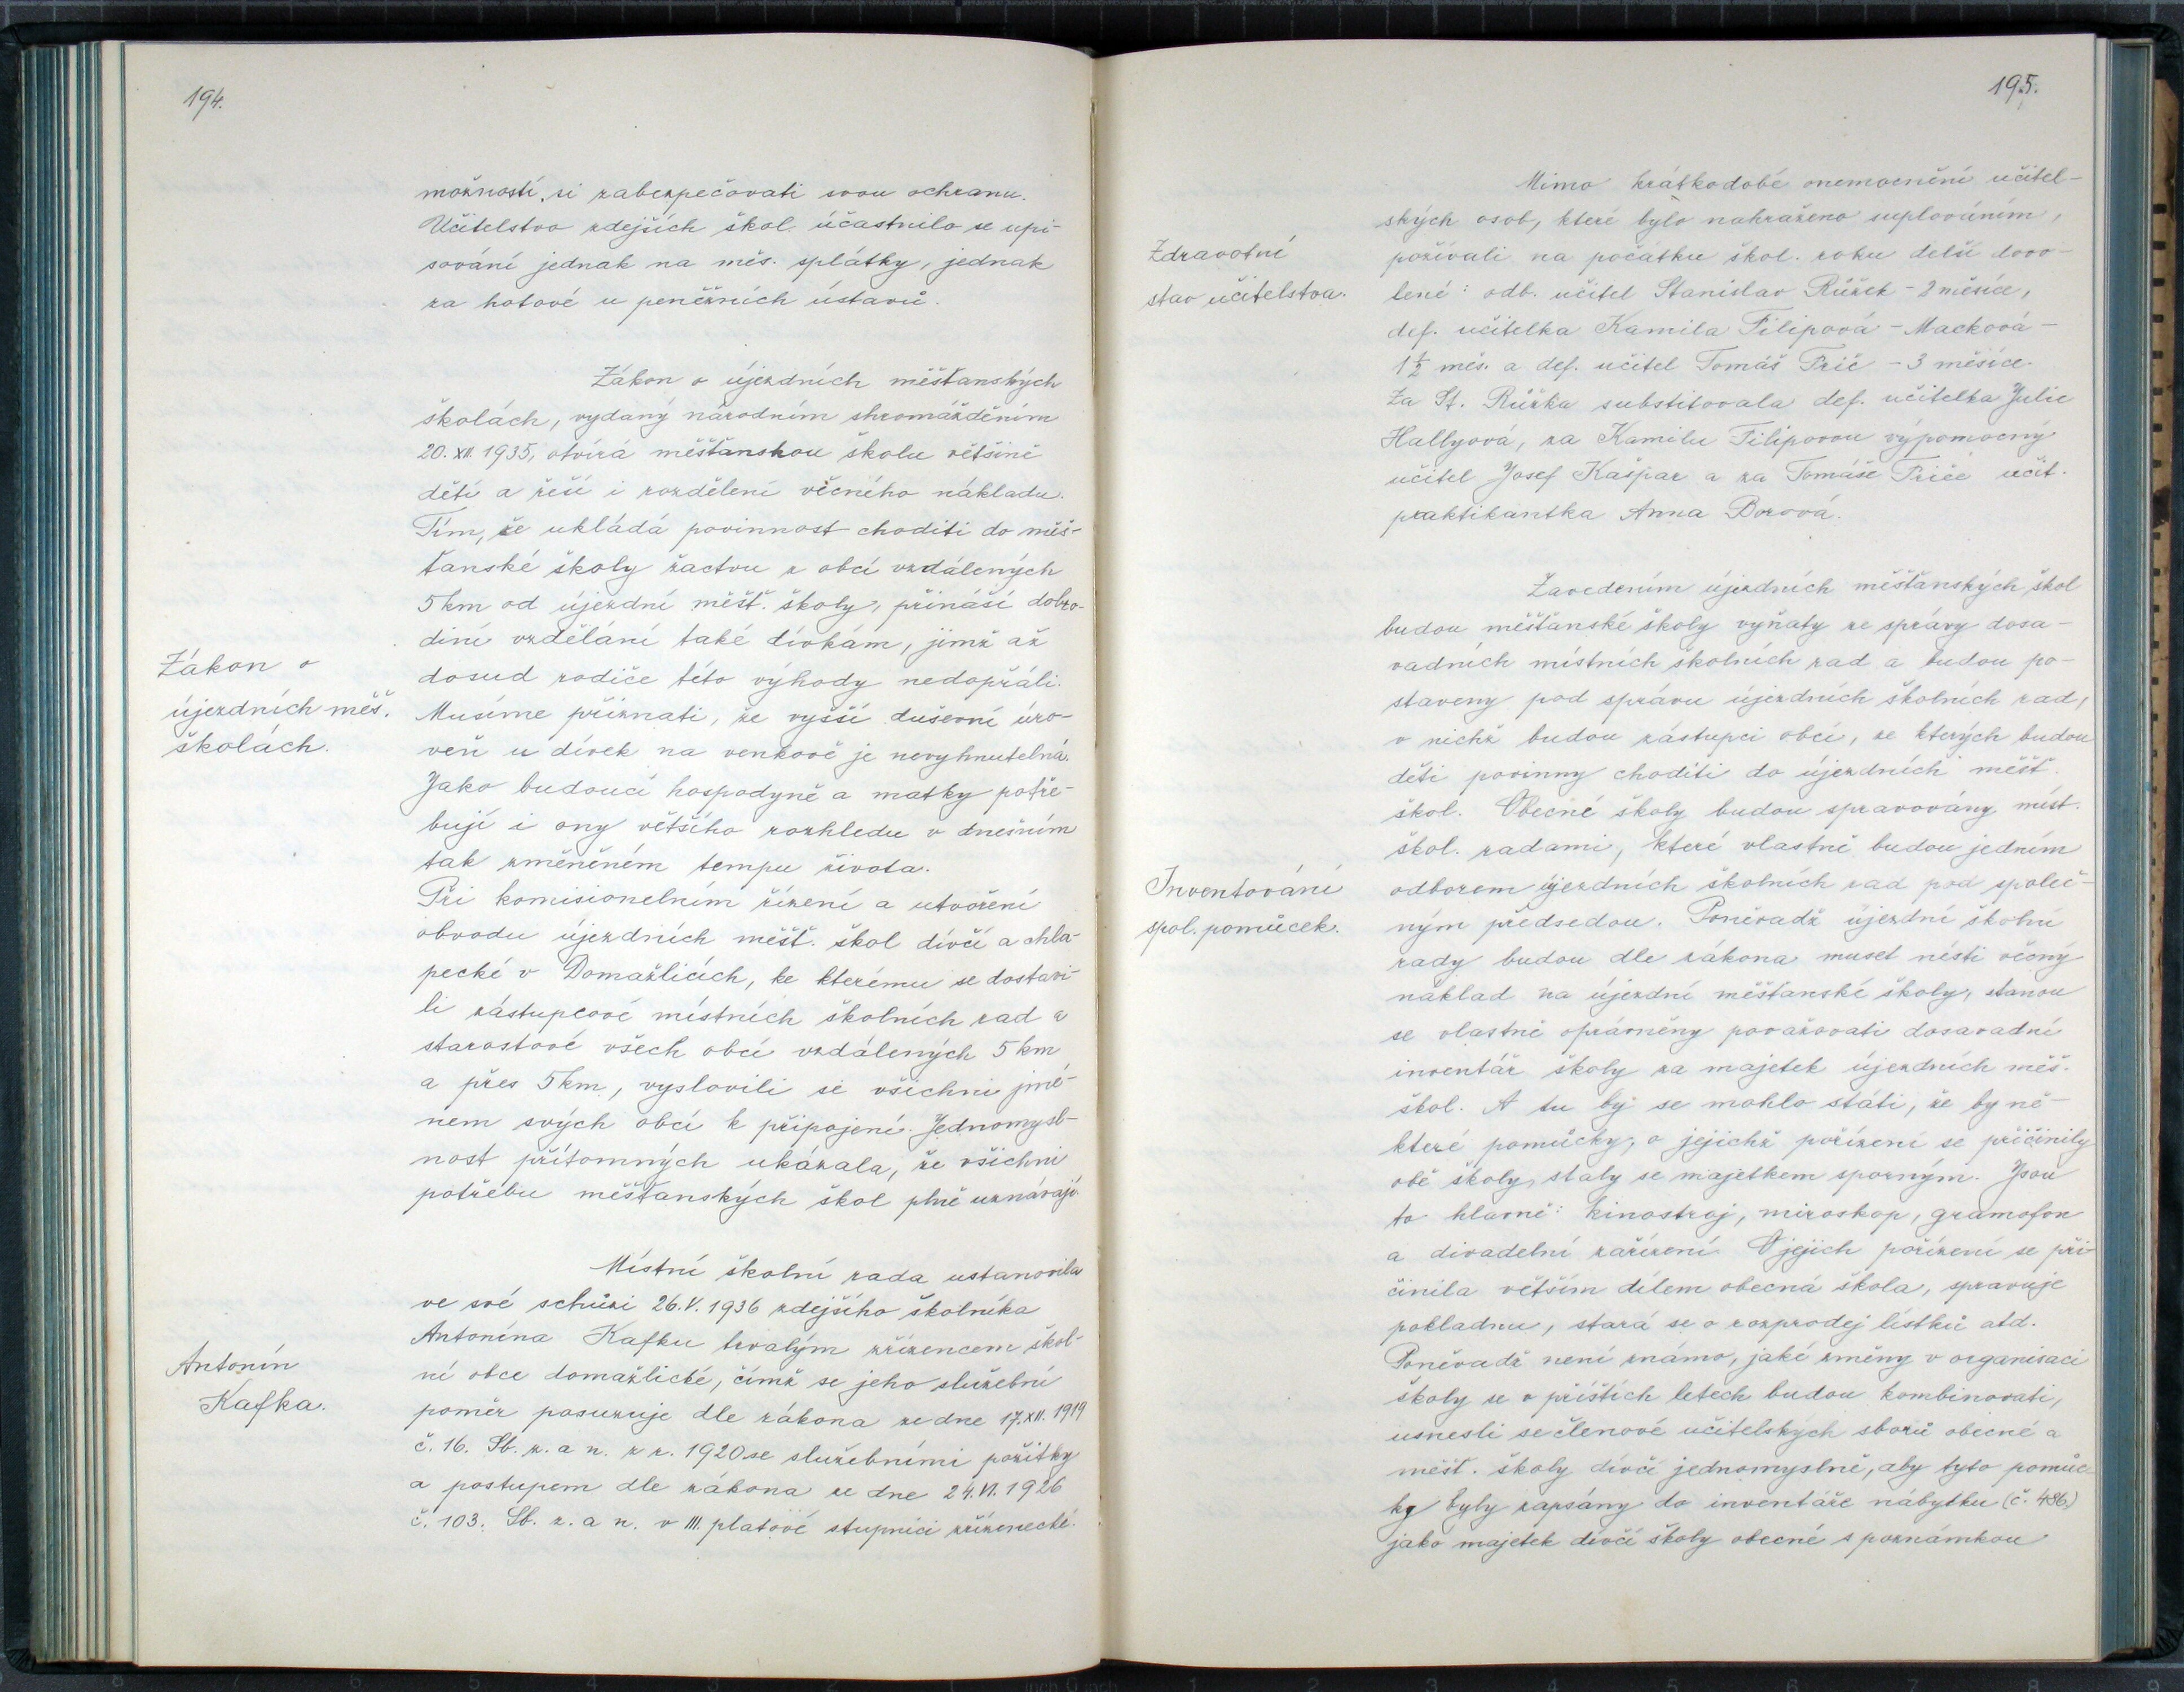 194.
možností, si zabezpečovati svou ochranu.
Učitelstvo zdejších škol účastnilo se upi-
sování jednak na měs. splátky, jednak
za hotové u peněžních ústavů.
Zákon o
újezdních měš.
školách.
Zákon o újezdních měšťanských
školách, vydaný národním shromážděním
20. XII. 1935, otvírá měšťanskou školu většině
dětí a řeší i rozdělení věcného nákladu.
Tím, že ukládá povinnost choditi do měš-
ťanské školy žactvu z obcí vzdálených
5 km od újezdní měšť. školy, přináší dobro-
diní vzdělání také dívkám, jimž až
dosud rodiče této výhody nedopřáli.
Musíme přiznati, že vyšší duševní úro-
veň u dívek na venkově je nevyhnutelná.
Jako budoucí hospodyně a matky potře-
bují i ony většího rozhledu v dnešním
tak změněném tempu života.
Při komisionelním řízení a utvoření
obvodu újezdních měšť. škol dívčí a chla-
pecké v Domažlicích, ke kterému se dostavi-
li zástupcové místních školních rad a
starostové všech obcí vzdálených 5 km
a přes 5 km, vyslovili se všichni jmé-
nem svých obcí k připojení. Jednomysl-
nost přítomných ukázala, že všichni
potřebu měšťanských škol plně uznávají.
Antonín
Kafka.
Místní školní rada ustanovila
ve své schůzi 26. V. 1936 zdejšího školníka
Antonína Kafku trvalým zřízencem škol-
ní obce domažlické, čímž se jeho služební
poměr posuzuje dle zákona ze dne 17. XII. 1919
č. 16. Sb. z. a n. z r. 1920 se služebními požitky
a postupem dle zákona ze dne 24. VI. 1926
č. 103. Sb. z. a n. v III. platové stupnici zřízenecké.
195.
Zdravotní
stav učitelstva.
Mimo krátkodobé onemocnění učitel-
ských osob, které bylo nahraženo suplováním,
požívali na počátku škol. roku delší dovo-
lené: odb. učitel Stanislav Růžek - 2 měsíce,
def. učitelka Kamila Filipová - Macková -
1 1/2 měs. a def. učitel Tomáš Frič - 3 měsíce.
Za St. Růžka substitovala def. učitelka Julie
Hallyová, za Kamilu Filipovou výpomocný
učitel Josef Kašpar a za Tomáše Friče učit.
praktikantka Anna Borová.
Inventování
spol. pomůcek.
Zavedením újezdních měšťanských škol
budou měšťanské školy vyňaty ze správy dosa-
vadních místních školních rad a budou po-
staveny pod správu újezdních školních rad,
v nichž budou zástupci obcí, ze kterých budou
děti povinny choditi do újezdních měšť.
škol. Obecné školy budou spravovány míst.
škol. radami, které vlastně budou jedním
odborem újezdních školních rad pod společ-
ným předsedou. Poněvadž újezdní školní
rady budou dle zákona muset nésti věcný
náklad na újezdní měšťanské školy, stanou
se vlastně oprávněny považovati dosavadní
inventář školy za majetek újezdních měš.
škol. A tu by se mohlo státi, že by ně-
které pomůcky, o jejichž pořízení se přičinily
obě školy, staly se majetkem sporným. Jsou
to hlavně: kinostroj, miroskop, gramofon
a divadelní zařízení. O jejich pořízení se při-
činila větším dílem obecná škola, spravuje
pokladnu, stará se o rozprodej lístků atd.
Poněvadž není známo, jaké změny v organisaci
školy se v příštích letech budou kombinovati,
usnesli se členové učitelských sborů obecné a
měšť. školy dívčí jednomyslně, aby tyto pomůc-
ky byly zapsány do inventáře nábytku (č. 486)
jako majetek dívčí školy obecné s poznámkou